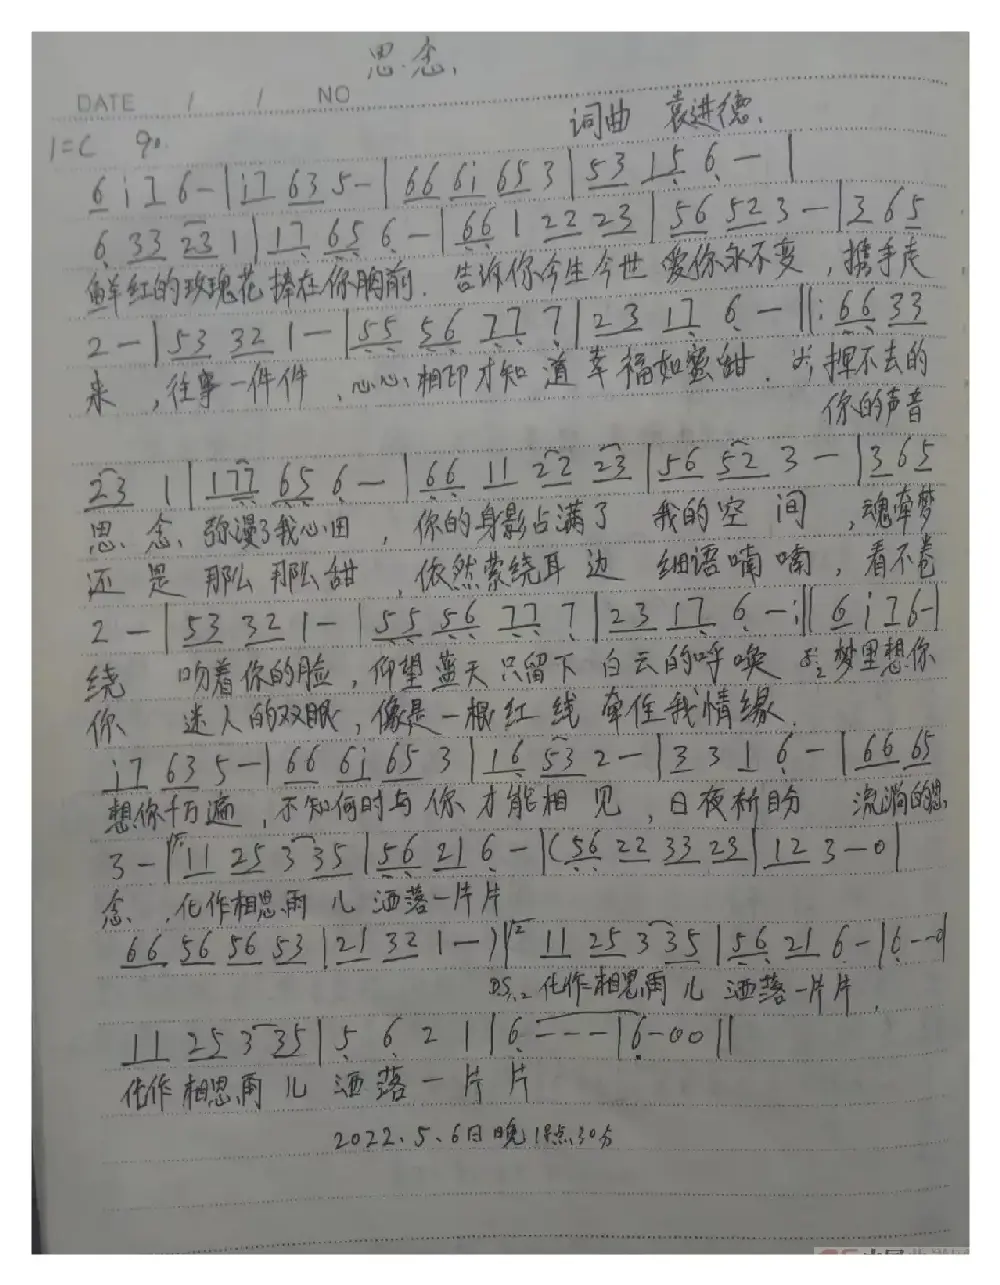 思念
DATE / / NO
词曲 袁进德
1=C 90
6 i 7 6 - | i7 63 5 - | 66 6i 65 3 | 53 15 6 - |
6 33 23 1 | 17 65 6 - | 66 1 22 23 | 56 52 3 - | 3 65
鲜红的玫瑰花捧在你胸前. 告诉你今生今世 爱你永不变 , 携手走
2 - | 53 32 1 - | 55 56 77 7 | 23 17 6 - ‖: 66 33
来 , 往事一件件 , 心心相印才知道幸福如蜜甜. 挥不去的
你的声音
23 1 | 177 65 6 - | 66 11 22 23 | 56 52 3 - | 3 65
思念 弥漫了我心田 , 你的身影占满了 我的空间 , 魂牵梦
还是 那么那么甜 , 依然萦绕耳边 细语喃喃 , 看不卷
2 - | 53 32 1 - | 55 56 77 7 | 23 17 6 - :‖ 6 i 76 - |
绕 吻着你的脸 , 仰望蓝天只留下 白云的呼唤 梦里想你
你 迷人的双眼 , 像是一根红线 牵住我情缘
i7 63 5 - | 66 6i 65 3 | 16 53 2 - | 3 3 1 6 - | 66 65
想你千万遍 , 不知何时与你才能相见 , 日夜祈盼 流淌的思
3 - | 11 25 3 35 | 56 21 6 - | (56 22 33 23 | 12 3 - 0 |
念 , 化作相思雨儿 洒落一片片
66 56 56 53 | 21 32 1 - ) | 2 11 25 3 35 | 56 21 6 - | 6 - - 0 |
DS.2 化作相思雨儿 洒落一片片 .
11 25 3 35 | 5 6 2 1 | 6 - - - | 6 - 0 0 ‖
化作相思雨儿 洒落一片片
2022.5.6日晚18点30分